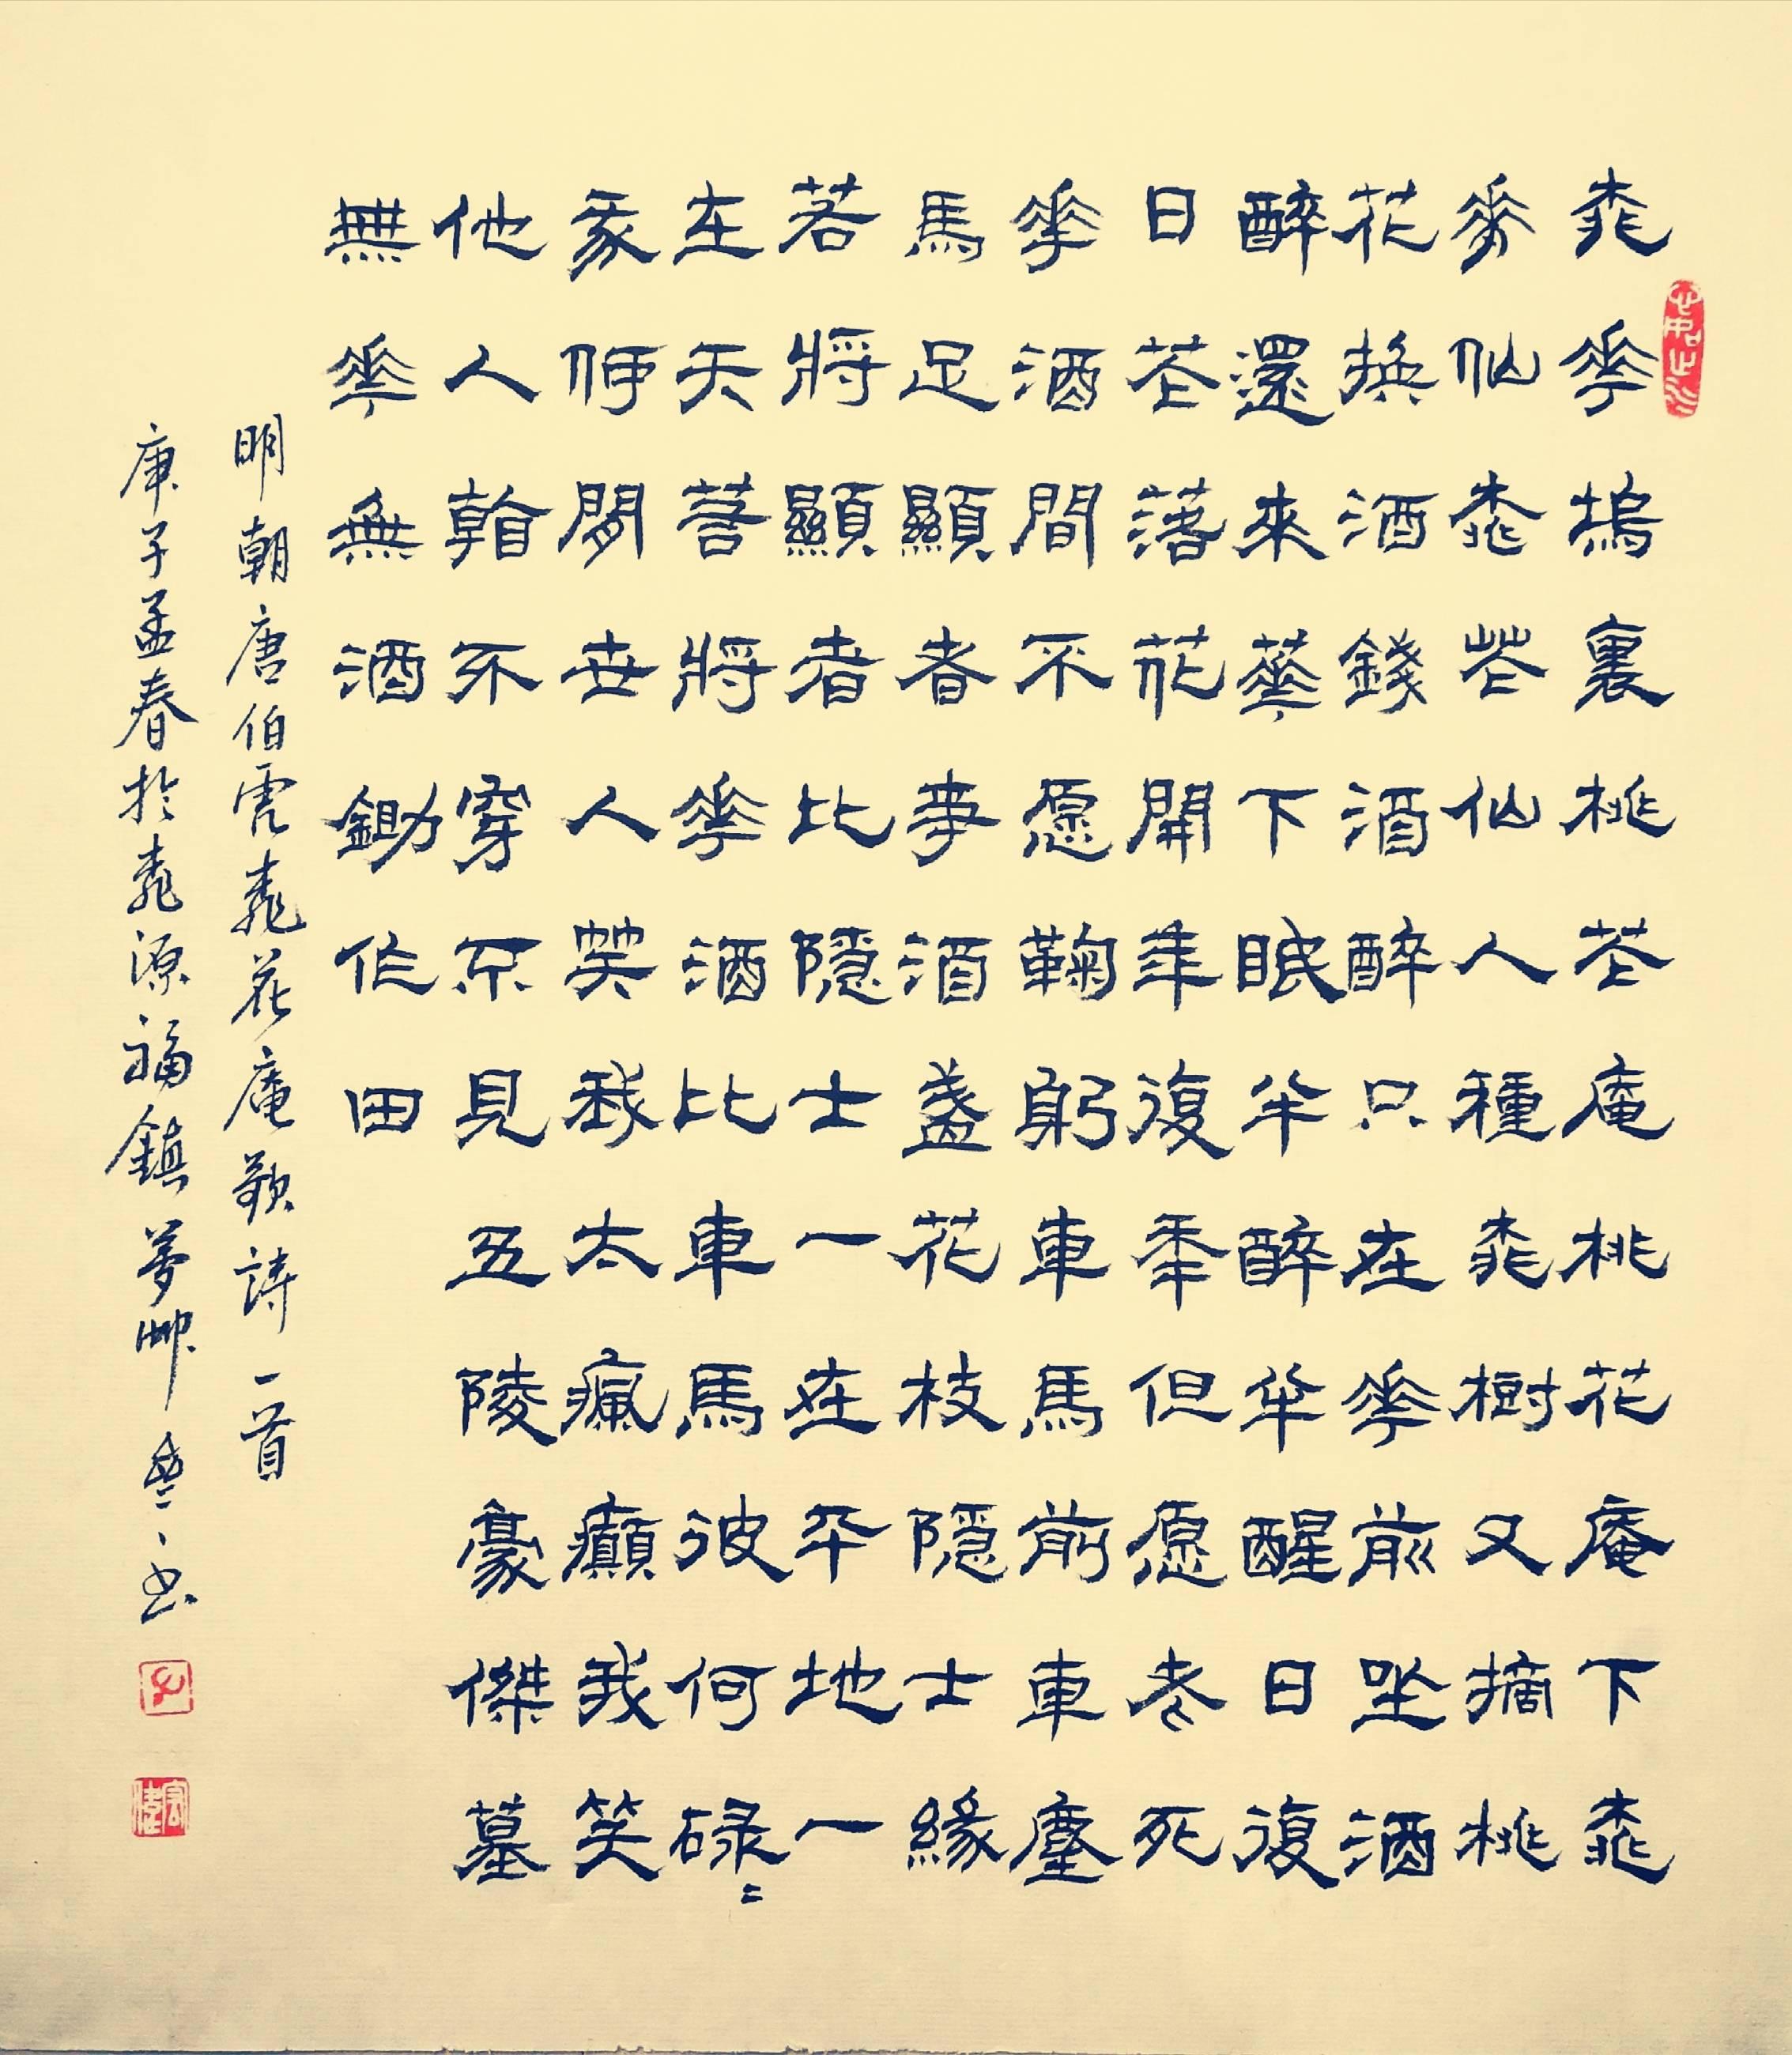 桃華塢裏桃花庵桃花庵下桃
華仙桃花仙人種桃樹又摘桃
花換酒錢酒醉只在華前坐酒
醉還來華下眠半醉半醒日復
日花落花開年復年但愿老死
華酒間不愿鞠躬車馬前車塵
馬足顯者事酒盞花枝隱士緣
若將顯者比隱士一在平地一
在天若將華酒比車馬彼何碌〻
我何閒世人笑我太瘋癲我笑
他人看不穿不見五陵豪傑墓
無華無酒鋤作田
明朝唐伯虎桃花庵歌詩一首
庚子孟春於桃源福鎮夢書